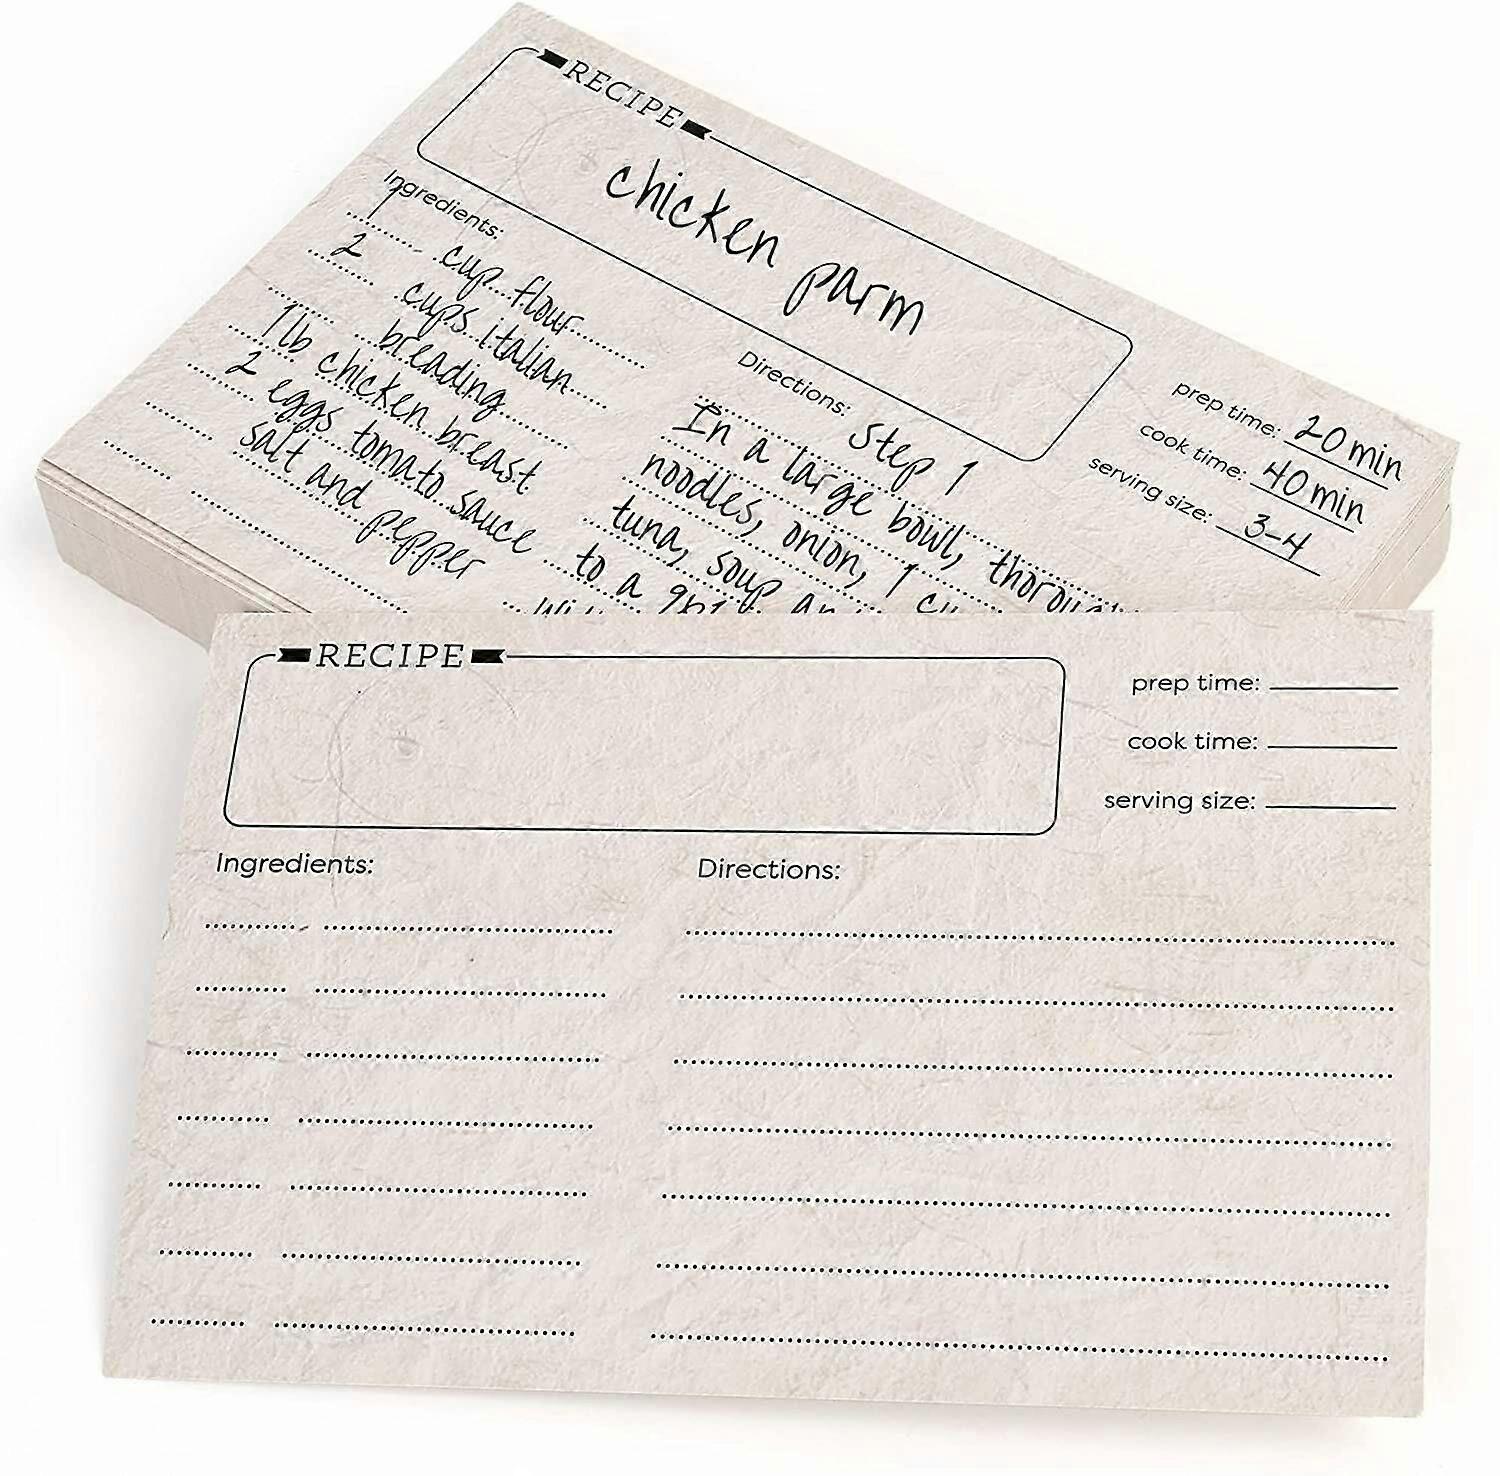 RECIPE
chicken parm
prep time: 20 min
cook time: 40 min
serving size: 3-4
Ingredients:
1 cup flour
2 cups italian
breading
1 lb chicken breast
2 eggs tomato sauce
salt and
pepper
Directions: Step 1
In a large bowl,
noodles, onion, 1
tuna, soup
to a
RECIPE
prep time:
cook time:
serving size:
Ingredients:
Directions: